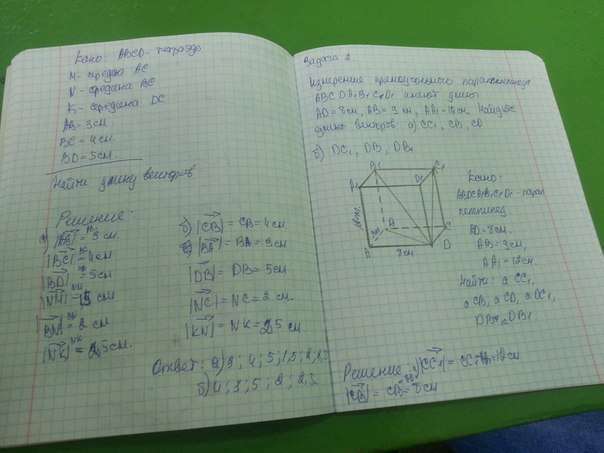 Дано: ABCD - тетраэдр
M - середина AC
N - середина BC
K - середина DC
AB = 3 см
BC = 4 см
BD = 5 см.
Найти длину векторов
Решение:
а) |AB| = 3 см.
|BC| = 4 см
|BD| = 5 см
|NM| = 1,5 см
|BN| = 2 см
|NK| = 2,5 см.
б) |CB| = CB = 4 см
|BA| = BA = 3 см
|DB| = DB = 5 см
|NC| = NC = 2 см.
|KN| = NK = 2,5 см
Ответ: а) 3; 4; 5; 1,5; 2; 2,5
б) 4; 3; 5; 2; 2,5
Задача 2
Измерения прямоугольного параллелепипеда
ABCDA1B1C1D1 имеют длины
AD = 8 см, AB = 9 см, AA1 = 12 см. Найдите
длины векторов: а) CC1, CB, CD
б) DC1, DB, DB1
B1
C1
A1
D1
B
C
A
D
8 см
Дано:
ABCDA1B1C1D1 - парал
лепипед
AD = 8 см.
AB = 9 см,
AA1 = 12 см.
Найти: а CC1,
а CB, а CD, а DC1,
DB, DB1
Решение: а) |CC1| = CC1 = 12 см
|CB| = CB = 8 см